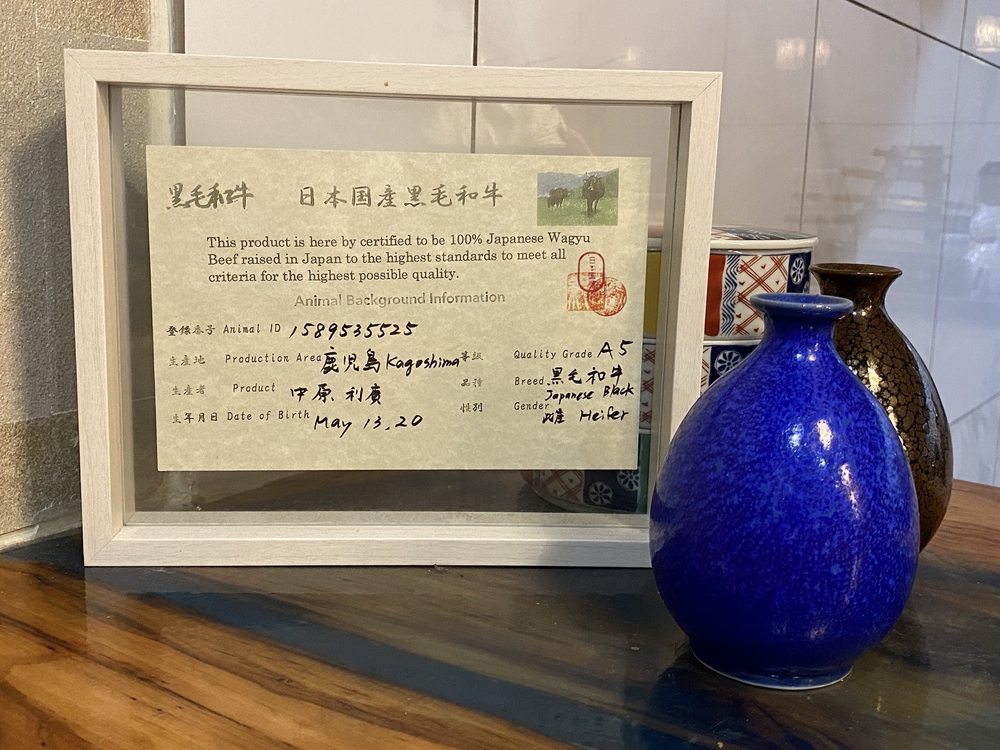 黒毛和牛 日本国産黒毛和牛
This product is here by certified to be 100% Japanese Wagyu
Beef raised in Japan to the highest standards to meet all
criteria for the highest possible quality.
Animal Background Information
登録番号 Animal ID 1589535525
生産地 Production Area 鹿児島 Kagoshima
等級 Quality Grade A5
生産者 Product 中原 利廣
品種 Breed 黒毛和牛
Japanese Black
生年月日 Date of Birth May 13, 20
性別 Gender
Heifer